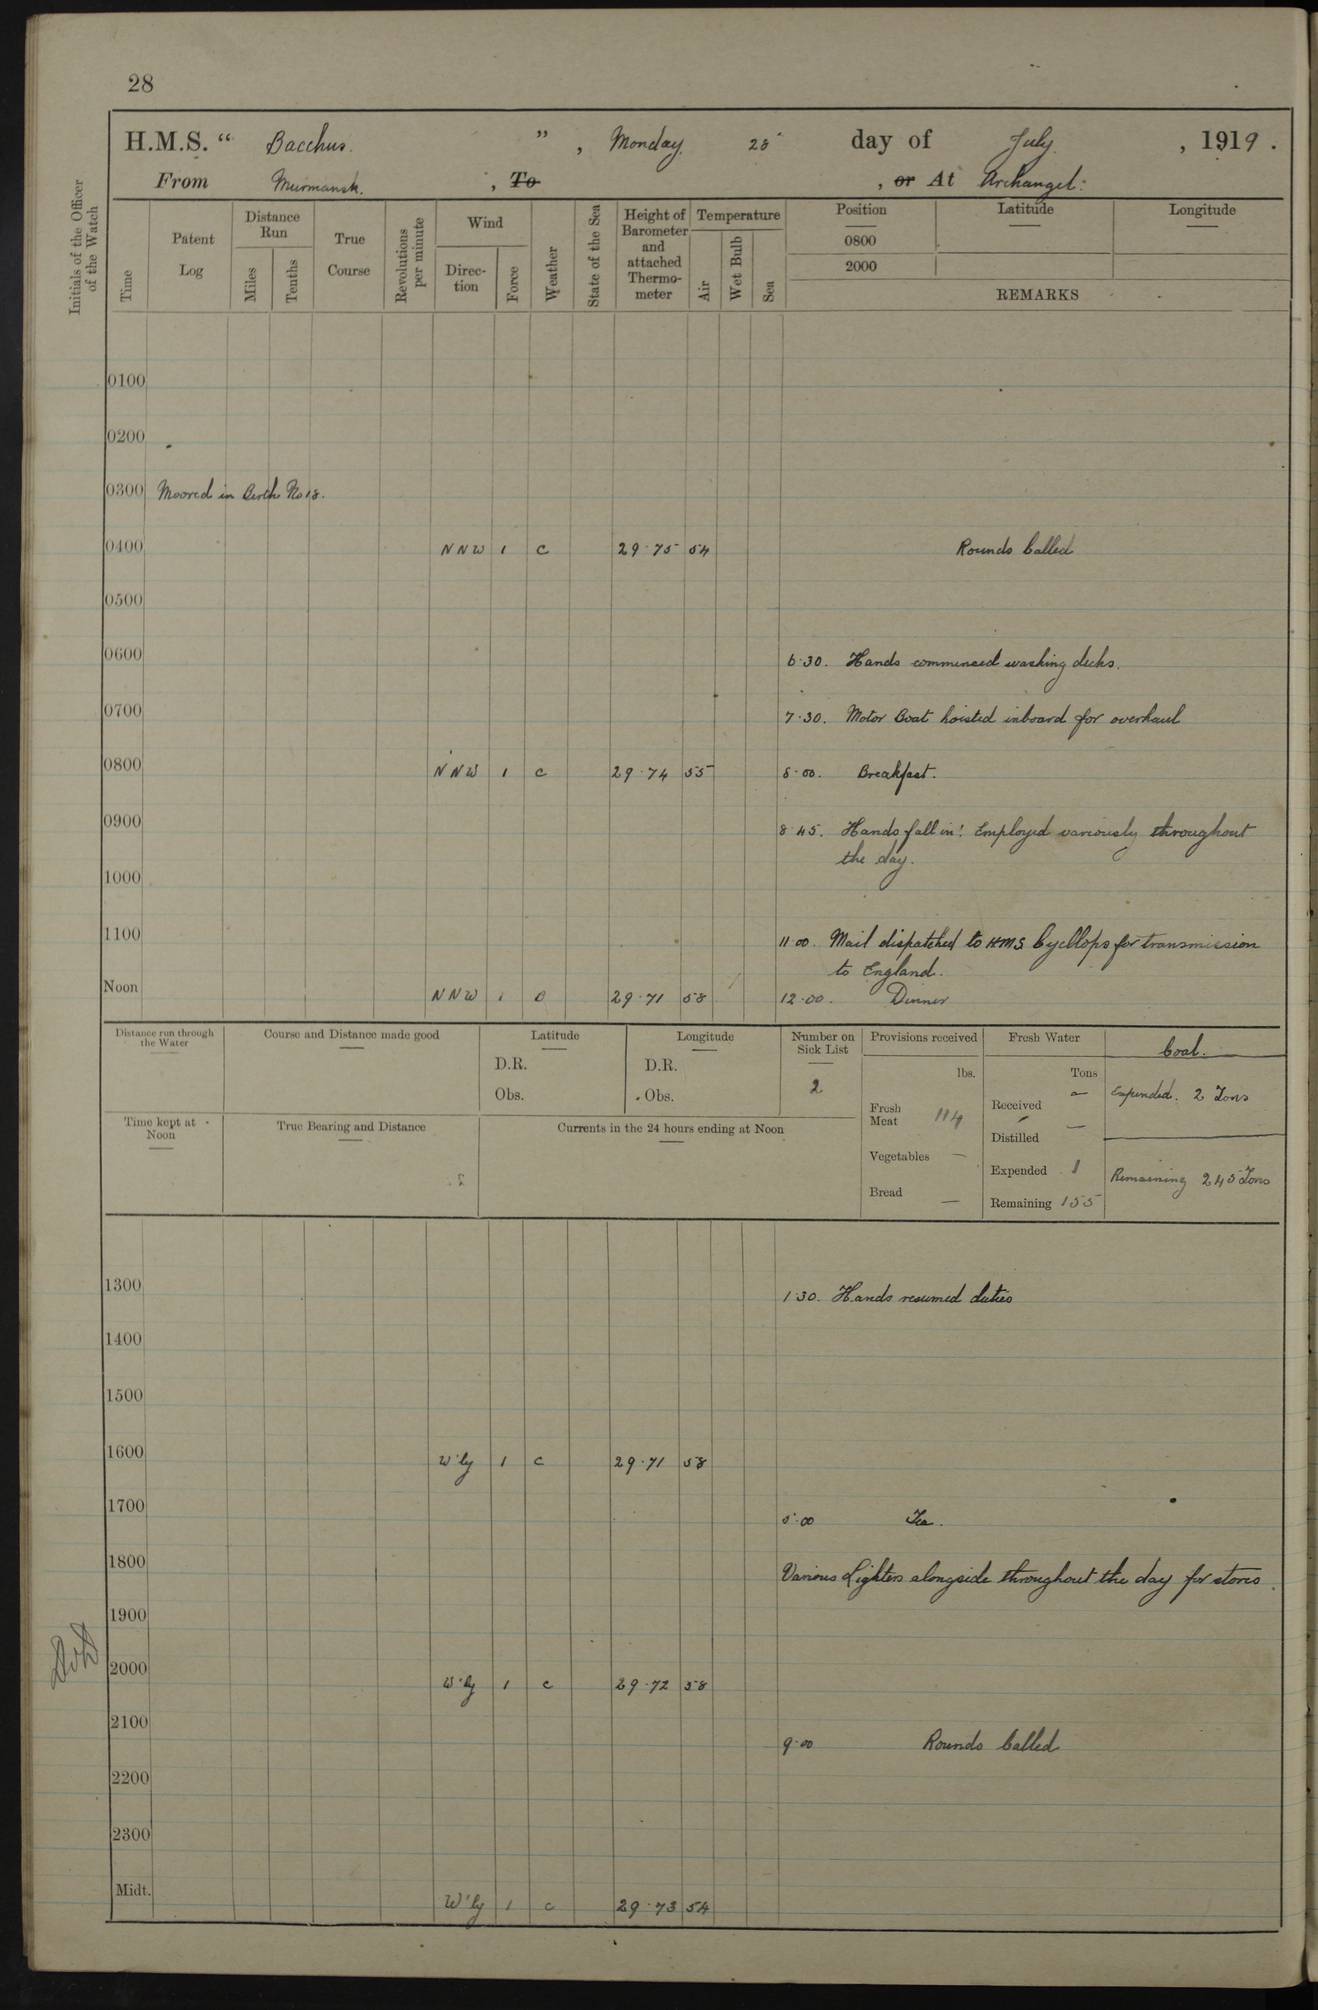 28
H.M.S. “ Bacchus. ” , Monday 28 day of July , 1919 .
From Murmansk. , To , or At Archangel:
Initials of the Officer of the Watch
Time
Patent Log
Distance Run
Miles
Tenths
True Course
Revolutions per minute
Wind
Direc-tion
Force
Weather
State of the Sea
Height of Barometer and attached Thermo-meter
Temperature
Air
Wet Bulb
Sea
Position Latitude Longitude
0800
2000
REMARKS
0100
0200
0300 Moored in Berth No 18.
0400 NNW 1 c 29.75 54 Rounds Called
0500
0600
6.30. Hands commenced washing decks.
0700
7.30. Motor Boat hoisted inboard for overhaul
0800 NNW 1 c 29.74 55 8.00. Breakfast.
0900
8.45. Hands fall in! Employed variously throughout
the day.
1000
1100
11.00. Mail dispatched to HMS Cycllops for transmission
to England.
Noon NNW 1 29.71 58 12.00. Dinner
Distance run through the Water
Course and Distance made good
Latitude
D.R.
Obs.
Longitude
D.R.
Obs.
Number on Sick List
2
Provisions received
lbs.
Fresh Meat 114
Vegetables —
Bread —
Fresh Water
Tons
Received —
Distilled —
Expended 1
Remaining 155
Coal.
Expended. 2 Tons
Remaining 245 Tons
Time kept at Noon
True Bearing and Distance
Currents in the 24 hours ending at Noon
1300
1.30. Hands resumed duties
1400
1500
1600 W'ly 1 c 29.71 58
1700
5.00 Tea.
1800
Various Lighters alongside throughout the day for stores.
1900
2000 W'ly 1 c 29.72 58
2100
9.00 Rounds Called
2200
2300
Midt. W'ly 1 c 29.73 54